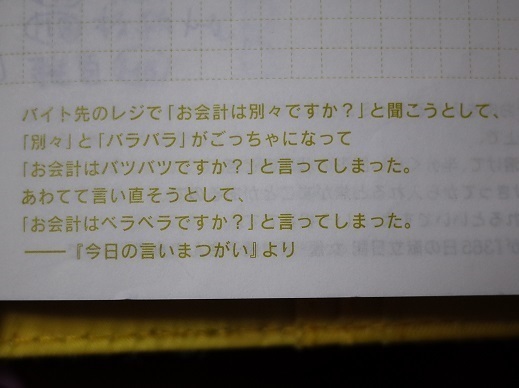 バイト先のレジで「お会計は別々ですか?」と聞こうとして、
「別々」と「バラバラ」がごっちゃになって
「お会計はバツバツですか?」と言ってしまった。
あわてて言い直そうとして、
「お会計はベラベラですか?」と言ってしまった。
――『今日の言いまつがい』より